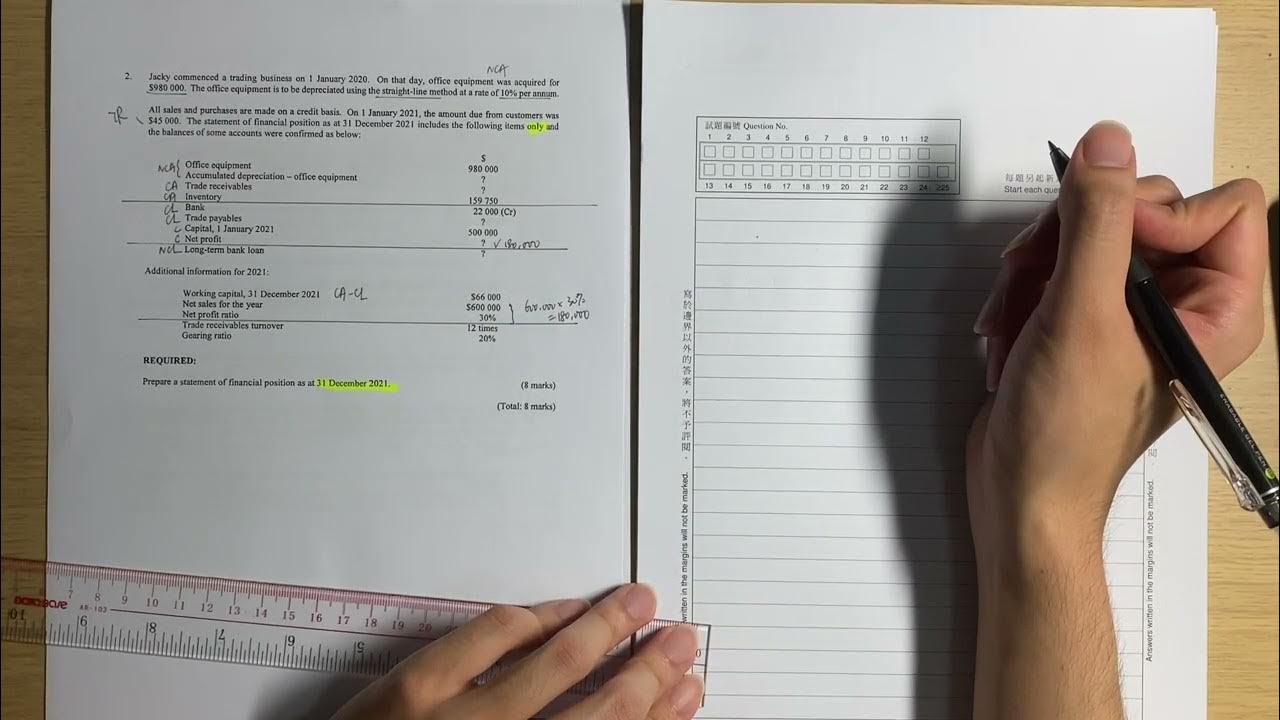 NCA
2. Jacky commenced a trading business on 1 January 2020. On that day, office equipment was acquired for
$980 000. The office equipment is to be depreciated using the straight-line method at a rate of 10% per annum.
TR
All sales and purchases are made on a credit basis. On 1 January 2021, the amount due from customers was
$45 000. The statement of financial position as at 31 December 2021 includes the following items only and
the balances of some accounts were confirmed as below:
$
NCA Office equipment 980 000
Accumulated depreciation – office equipment ?
CA Trade receivables ?
CA Inventory 159 750
CL Bank 22 000 (Cr)
CL Trade payables ?
C Capital, 1 January 2021 500 000
C Net profit ? 180,000
NCL Long-term bank loan ?
Additional information for 2021:
Working capital, 31 December 2021 CA-CL $66 000
Net sales for the year $600 000 600,000 x 30%
Net profit ratio 30% = 180,000
Trade receivables turnover 12 times
Gearing ratio 20%
REQUIRED:
Prepare a statement of financial position as at 31 December 2021. (8 marks)
(Total: 8 marks)
試題編號 Question No.
1 2 3 4 5 6 7 8 9 10 11 12
13 14 15 16 17 18 19 20 21 22 23 24 225
每題另起新
Start each ques
寫於邊界以外的答案，將不予評閱。
written in the margins will not be marked.
閱
Answers written in the margins will not be marked.
ERASABLE GEL PEN
DATABASE AR-103
7 8 9 10 11 12 13 14 15 16 17 18 19 20
10 9 8 7 6 5